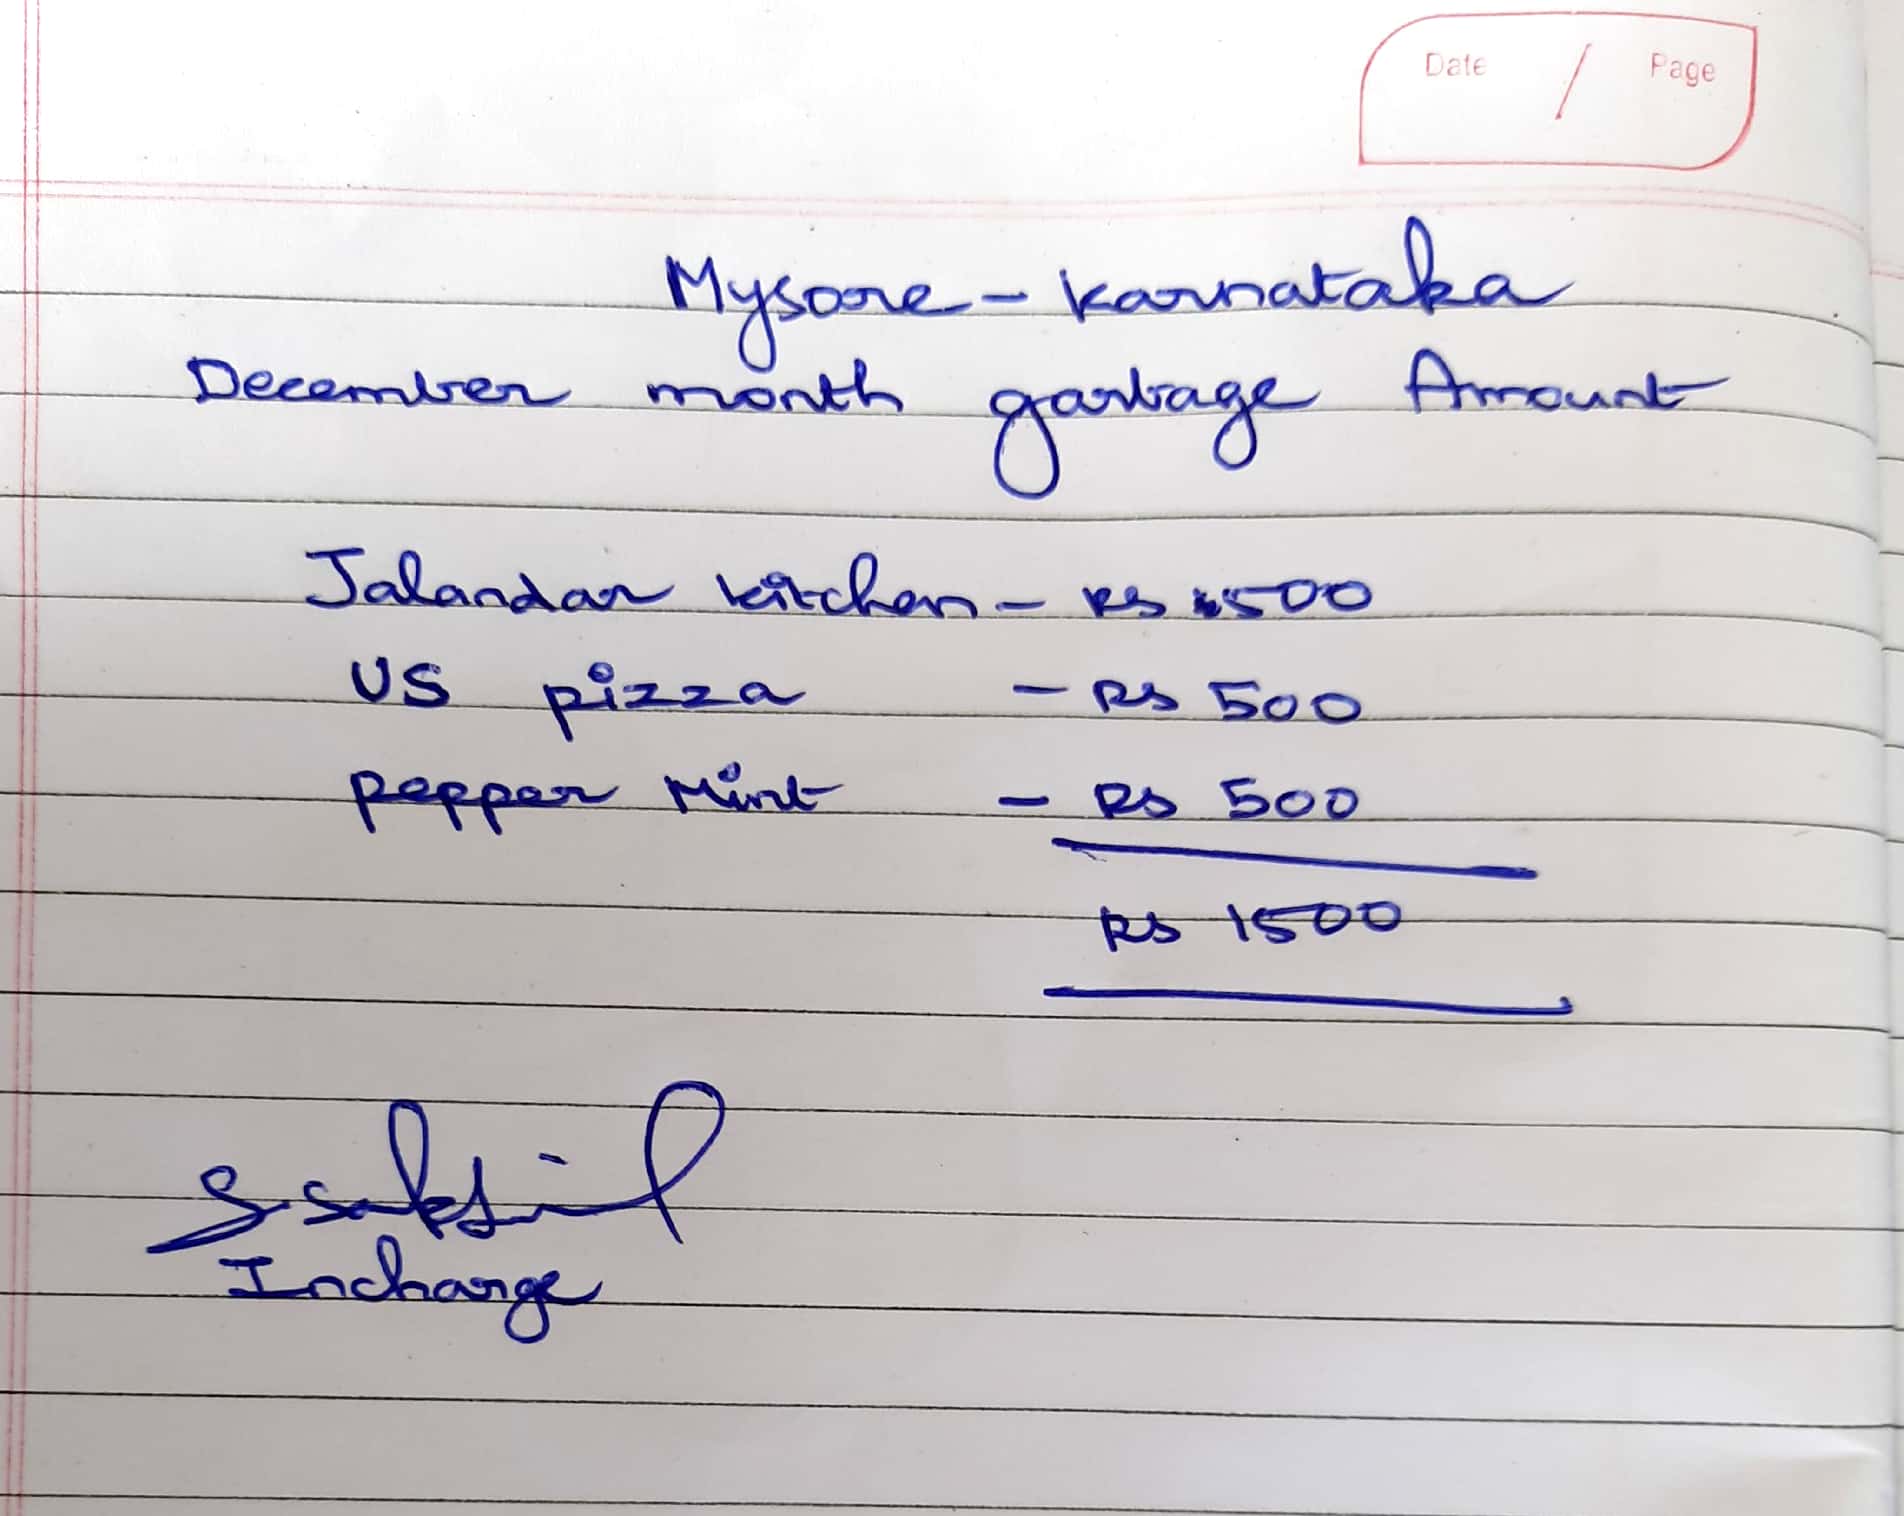 Date / Page
Mysore - Karnataka
December month garbage Amount
Jalandar kitchen - Rs 500
US pizza - Rs 500
pepper Mint - Rs 500
Rs 1500
Incharge